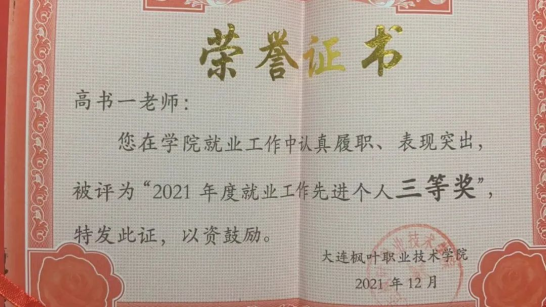 荣誉证书
高书一老师：
您在学院就业工作中认真履职、表现突出，
被评为“2021 年度就业工作先进个人三等奖”，
特发此证，以资鼓励。
大连枫叶职业技术学院
2021 年 12 月